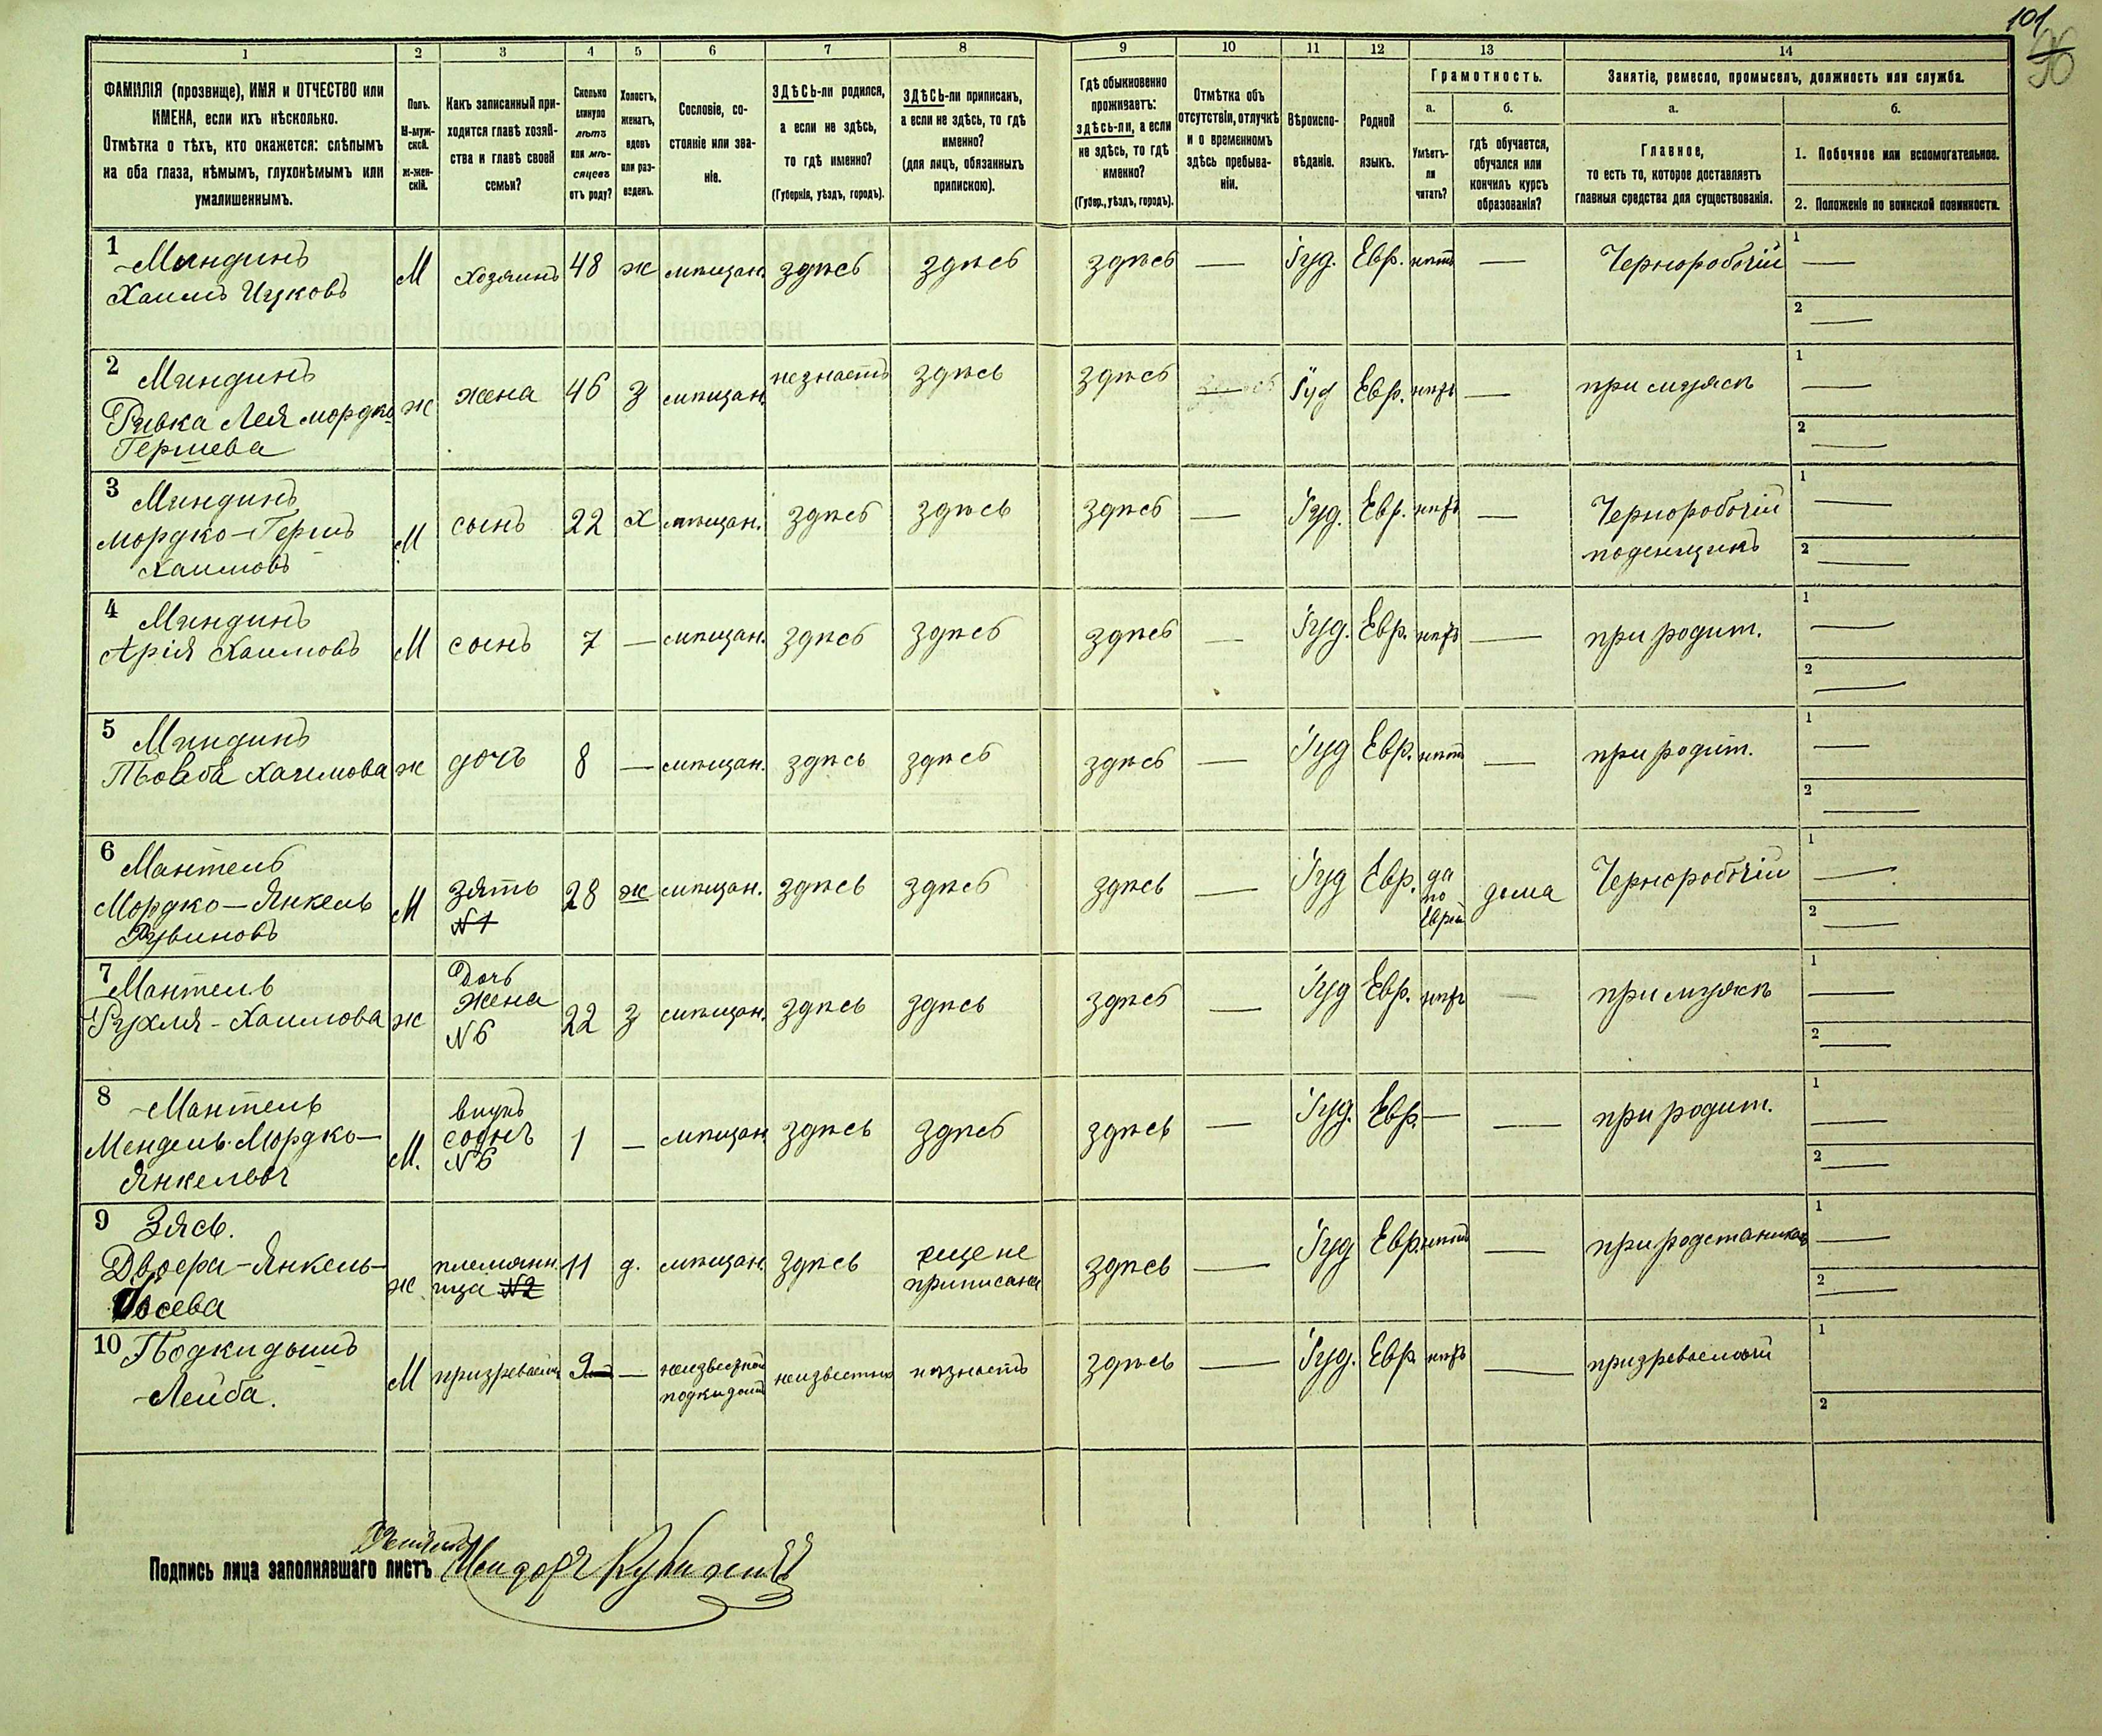 101
96
1
2
3
4
5
6
7
8
9
10
11
12
13
14
ФАМИЛІЯ (прозвище), ИМЯ и ОТЧЕСТВО или
ИМЕНА, если ихъ нѣсколько.
Отмѣтка о тѣхъ, кто окажется: слѣпымъ
на оба глаза, нѣмымъ, глухонѣмымъ или
умалишеннымъ.
Полъ.
М-муж-
ской.
ж-жен-
скій.
Какъ записанный при-
ходится главѣ хозяй-
ства и главѣ своей
семьи?
Сколько
минуло
лѣтъ
или мѣ-
сяцевъ
отъ роду?
Холостъ,
женатъ,
вдовъ
или раз-
веденъ.
Сословіе, со-
стояніе или зва-
ніе.
ЗДѢСЬ-ли родился,
а если не здѣсь,
то гдѣ именно?
(Губернія, уѣздъ, городъ).
ЗДѢСЬ-ли приписанъ,
а если не здѣсь, то гдѣ
именно?
(для лицъ, обязанныхъ
припискою).
Гдѣ обыкновенно
проживаетъ:
здѣсь-ли, а если
не здѣсь, то гдѣ
именно?
(Губер., уѣздъ, городъ).
Отмѣтка объ
отсутствіи, отлучкѣ
и о временномъ
здѣсь пребыва-
ніи.
Вѣроиспо-
вѣданіе.
Родной
языкъ.
Грамотность.
а.
Умѣетъ-
ли
читать?
б.
гдѣ обучается,
обучался или
кончилъ курсъ
образованія?
Занятіе, ремесло, промыселъ, должность или служба.
а.
Главное,
то есть то, которое доставляетъ
главныя средства для существованія.
б.
1. Побочное или вспомогательное.
2. Положеніе по воинской повинности.
1 Миндинъ
Хаимъ Ицковъ
М хозяинъ 48 ж мѣщан. здѣсь здѣсь здѣсь — Іуд. Евр. нѣтъ — Чернорабочій 1 —
2 —
2 Миндинъ
Ривка Лея мордко
Гершева
ж жена 46 з мѣщан. незнаетъ здѣсь здѣсь — Іуд Евр. нѣтъ — при мужѣ 1 —
2 —
3 Миндинъ
мордко-Гершъ
Хаимовъ
М сынъ 22 х мѣщан. здѣсь здѣсь здѣсь — Іуд. Евр. нѣтъ — Чернорабочій
поденщикъ
1 —
2 —
4 Миндинъ
Арія Хаимовъ
М сынъ 7 — мѣщан. здѣсь здѣсь здѣсь — Іуд. Евр. нѣтъ — при родит. 1 —
2 —
5 Миндинъ
Хаимова
ж дочь 8 — мѣщан. здѣсь здѣсь здѣсь — Іуд Евр. нѣтъ — при родит. 1 —
2 —
6 Мантель
Мордко-Янкель
Рувиновъ
М зять
№1
28 ж мѣщан. здѣсь здѣсь здѣсь — Іуд Евр. да
по
Еврей
дома Чернорабочій 1 —
2 —
7 Мантель
Рухля-Хаимова
ж Дочь
жена
№6
22 з мѣщан. здѣсь здѣсь здѣсь — Іуд Евр. нѣтъ — при мужѣ 1 —
2 —
8 Мантель
Мендель Мордко-
Янкелевъ
М. внукъ
сынъ
№6
1 — мѣщан здѣсь здѣсь здѣсь — Іуд. Евр. — — при родит. 1 —
2 —
9 Зясь.
Двоера-Янкель-
Іосева
ж племянн
ица №2
11 д. мѣщан. здѣсь еще не
приписана
здѣсь — Іуд Евр. нѣтъ — 1 —
2 —
10 Подкидышъ
Лейба.
М 9 — подкидыш неизвестно незнаетъ здѣсь — Іуд. Евр. нѣтъ — призреваемый 1
2
Подпись лица заполнявшаго листъ